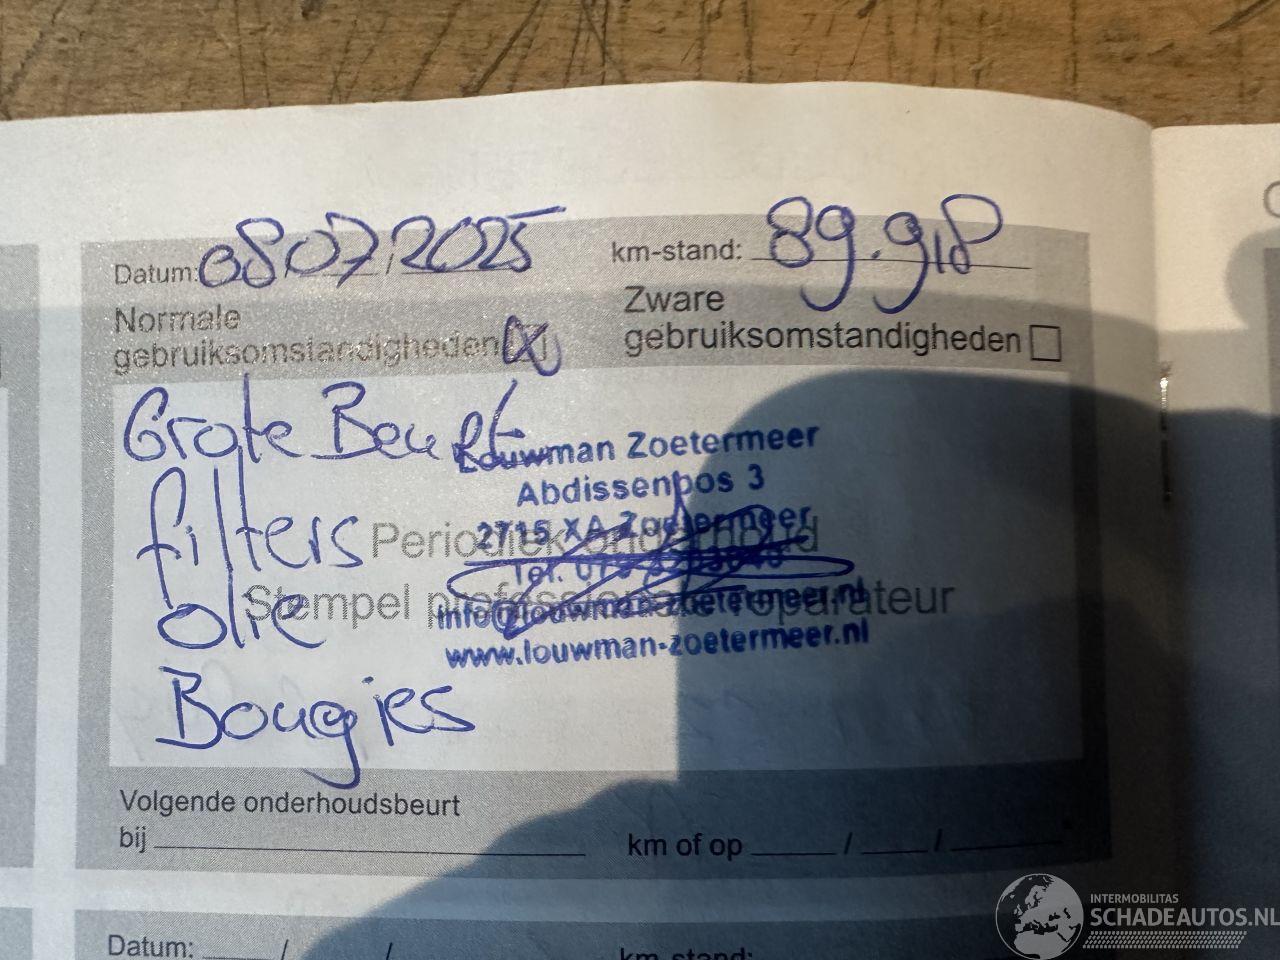 Datum: 08/07/2025 km-stand: 89.918
Normale gebruiksomstandigheden
Zware gebruiksomstandigheden
Grote Beurt
filters
olie
Bougies
Louwman Zoetermeer
Abdissenbos 3
2715 XA Zoetermeer
Tel. 079
info@louwman-zoetermeer.nl
www.louwman-zoetermeer.nl
Periodiek onderhoud
Stempel professionele reparateur
Volgende onderhoudsbeurt
bij km of op / /
Datum: / / km-stand:
INTERMOBILITAS
SCHADEAUTOS.NL